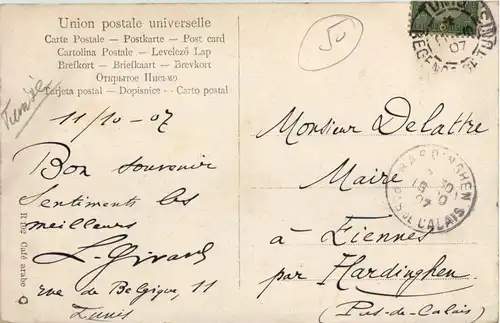 Union postale universelle
Carte Postale — Postkarte — Post card
Cartolina Postale — Levelező Lap
Brefkort — Briefkaart — Brevkort
Открытое Письмо
Tarjeta postal — Dopisnice — Carto postal
Tunisie
50
TUNIS
REGENCE DE TUNIS
07
11/10-07
Bon souvenir
Sentiments les
meilleurs
L. Girard
rue de Belgique, 11
Tunis
Café arabe
Monsieur Delattre
Maire
à Fiennes
par Hardinghen
(Pas-de-Calais)
HARDINGHEN
PAS DE CALAIS